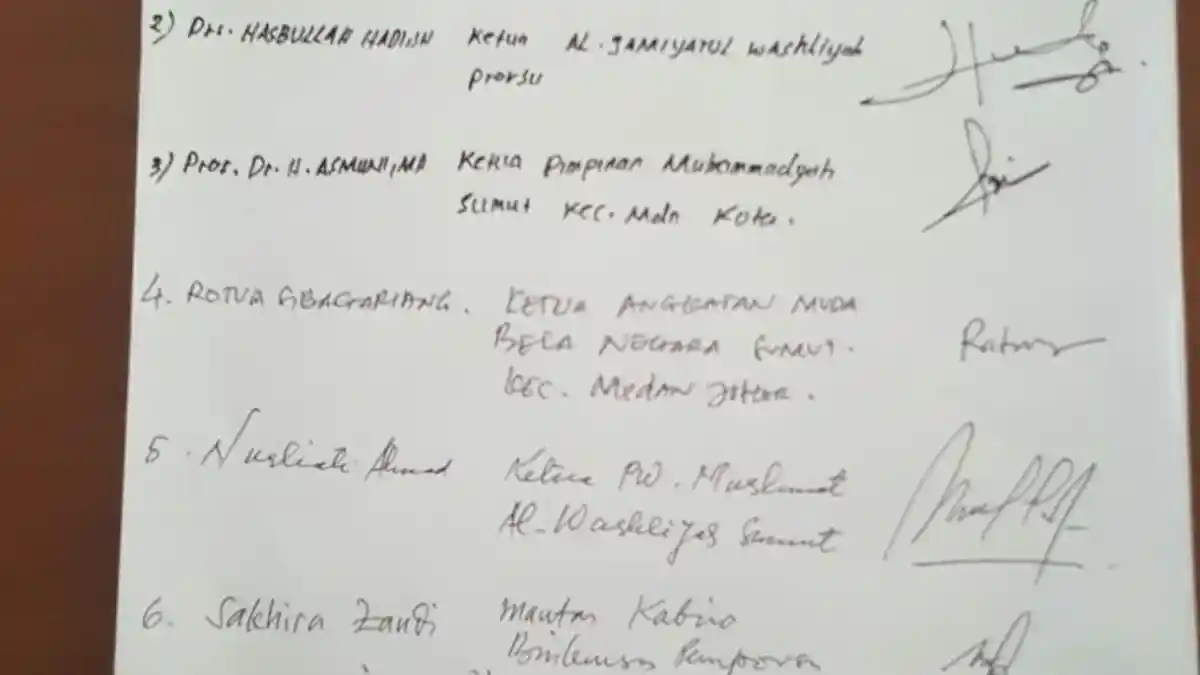 2) Drs. HASBULLAH HADI,SH Ketua AL.JAMIYATUL Washliyah
Provsu
3) Prof. Dr. H. ASMUNI,MA Ketua Pimpinan Muhammadyah
Sumut Kec. Mdn Kota.
4. ROTUA KETUA ANGKATAN MUDA
BELA NEGARA SUMUT.
KEC. Medan Johor.
5. Nurliati Ahmad Ketua PW. Muslimat
Al-Washliyah Sumut
6. Sakhira Zandi Mantan